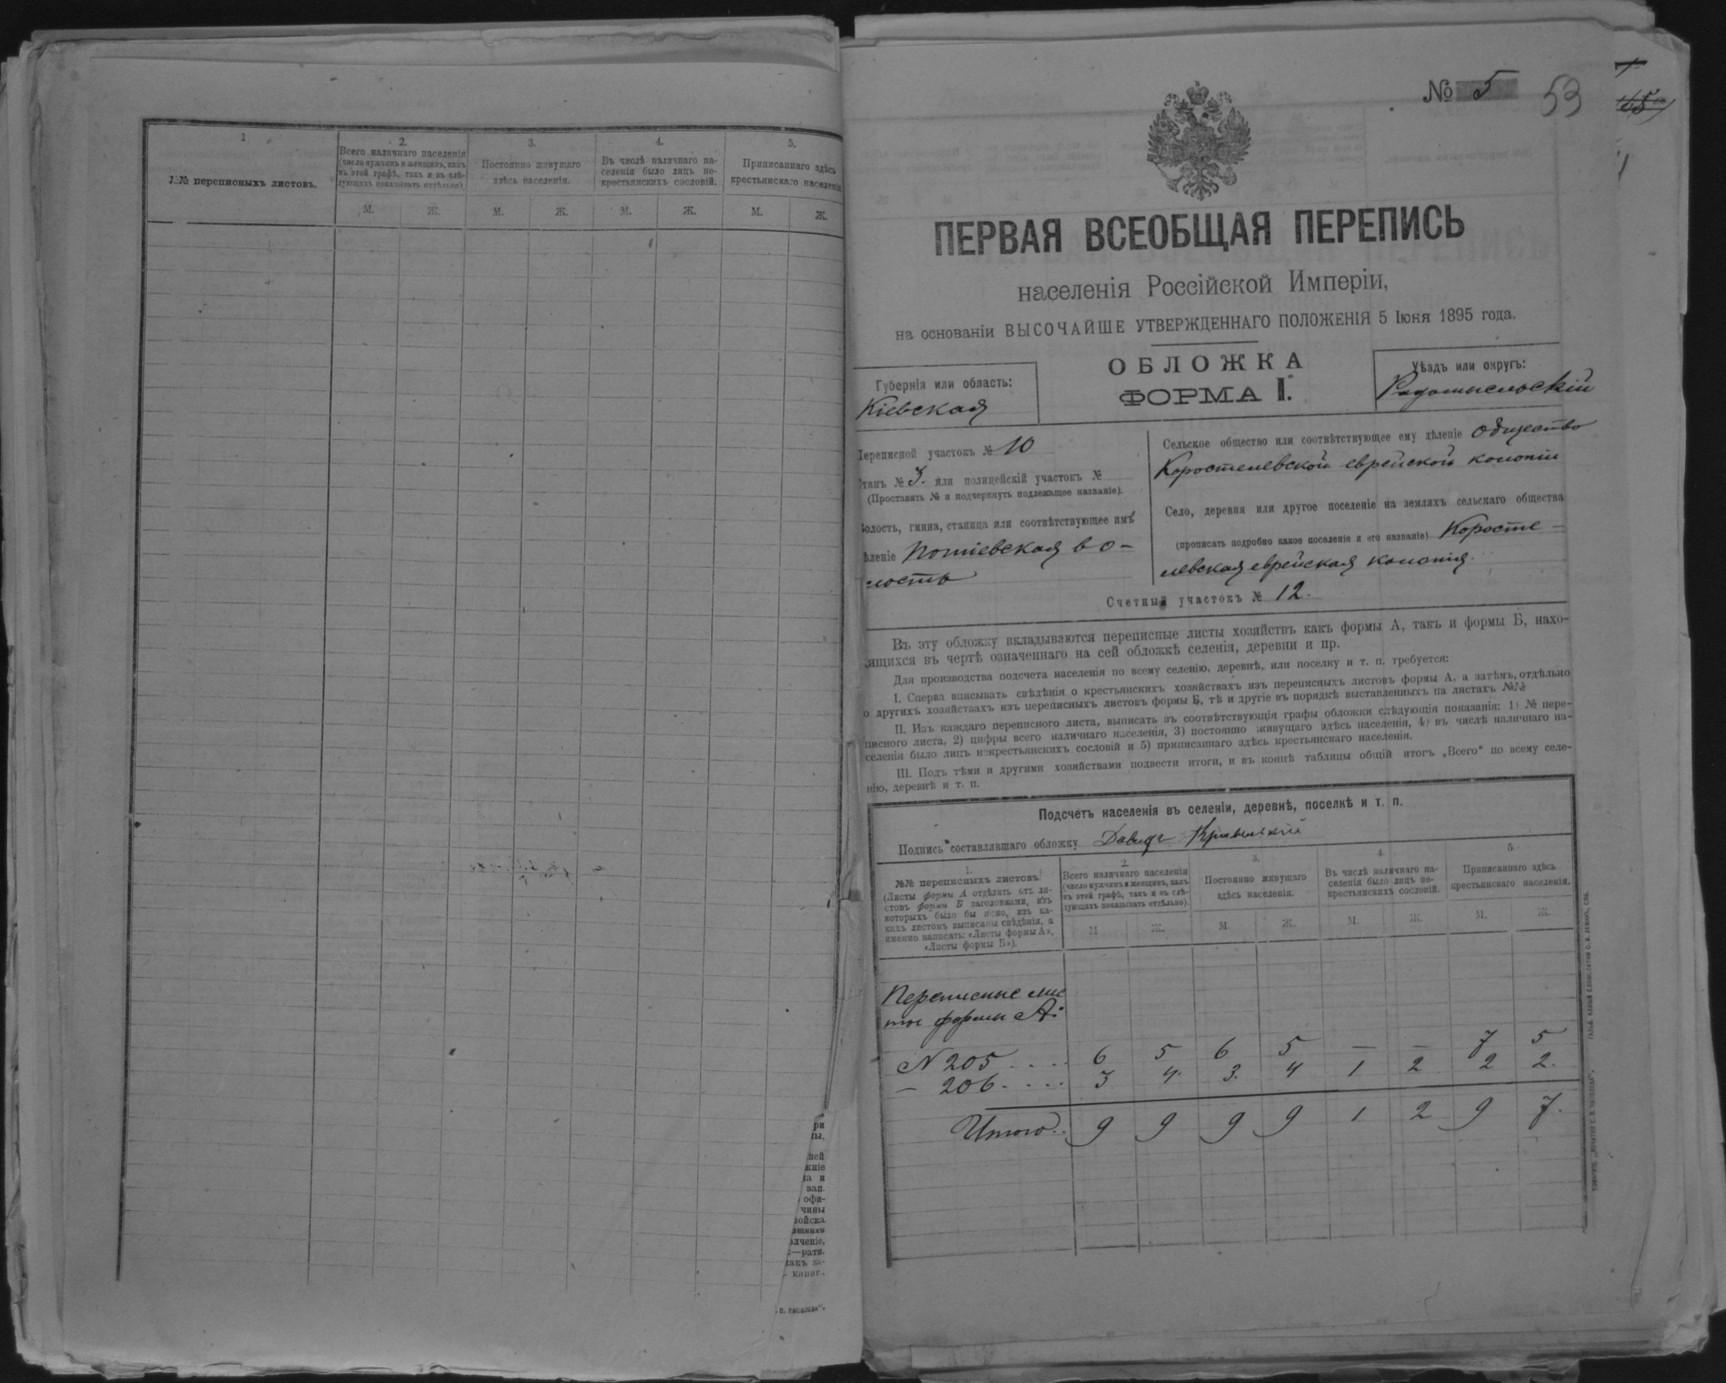 1
№№ переписныхъ листовъ.
2.
Всего наличнаго населенія
(число мужчинъ и женщинъ, какъ
въ этой графѣ, такъ и въ слѣ-
дующихъ показывать отдѣльно)
3.
Постоянно живущаго
здѣсь населенія.
4.
Въ числѣ наличнаго на-
селенія было лицъ не-
крестьянскихъ сословій.
5.
Приписаннаго здѣсь
крестьянскаго населенія
М. Ж. М. Ж. М. Ж. М. Ж.
№ 5 53
ПЕРВАЯ ВСЕОБЩАЯ ПЕРЕПИСЬ
населенія Россійской Имперіи,
на основаніи ВЫСОЧАЙШЕ УТВЕРЖДЕННАГО ПОЛОЖЕНІЯ 5 Іюня 1895 года.
ОБЛОЖКА
ФОРМА I.
Губернія или область:
Кіевская
Уѣздъ или округъ:
Радомысльскій
Переписной участокъ № 10
Станъ № 3. или полицейскій участокъ №
(Проставить № и подчеркнуть подлежащее названіе).
Волость, гмина, станица или соотвѣтствующее имъ
дѣленіе Потіевская во-
лость
Сельское общество или соотвѣтствующее ему дѣленіе Общество
Коростелевской еврейской колоніи
Село, деревня или другое поселеніе на земляхъ сельскаго общества
(прописать подробно какое поселеніе и его названіе) Коросте-
левская еврейская колонія.
Счетный участокъ № 12.
Въ эту обложку вкладываются переписные листы хозяйствъ какъ формы А, такъ и формы Б, нахо-
дящихся въ чертѣ означеннаго на сей обложкѣ селенія, деревни и пр.
Для производства подсчета населенія по всему селенію, деревнѣ, или поселку и т. п. требуется:
I. Сперва вписывать свѣдѣнія о крестьянскихъ хозяйствахъ изъ переписныхъ листовъ формы А, а затѣмъ, отдѣльно
о другихъ хозяйствахъ изъ переписныхъ листовъ формы Б, тѣ и другіе въ порядкѣ выставленныхъ на листахъ №№
II. Изъ каждаго переписного листа, выписать въ соотвѣтствующія графы обложки слѣдующія показанія: 1) № пере-
писного листа, 2) цифры всего наличнаго населенія, 3) постоянно живущаго здѣсь населенія, 4) въ числѣ наличнаго на-
селенія было лицъ некрестьянскихъ сословій и 5) приписаннаго здѣсь крестьянскаго населенія.
III. Подъ тѣми и другими хозяйствами подвести итоги, и въ концѣ таблицы общій итогъ „Всего" по всему селе-
нію, деревнѣ и т. п.
Подсчетъ населенія въ селеніи, деревнѣ, поселкѣ и т. п.
Подпись составлявшаго обложку Давидъ
1.
№№ переписныхъ листовъ.
(Листы формы А отдѣлить отъ ли-
стовъ формы Б заголовками, изъ
которыхъ было бы ясно, изъ ка-
кихъ листовъ выписаны свѣдѣнія, а
именно написать: «Листы формы А»,
«Листы формы Б»).
2.
Всего наличнаго населенія
(число мужчинъ и женщинъ, какъ
въ этой графѣ, такъ и въ слѣ-
дующихъ показывать отдѣльно).
3.
Постоянно живущаго
здѣсь населенія.
4.
Въ числѣ наличнаго на-
селенія было лицъ не-
крестьянскихъ сословій.
5.
Приписаннаго здѣсь
крестьянскаго населенія.
М. Ж. М. Ж. М. Ж. М. Ж.
Переписные лис
ты формы А:
№ 205.... 6 5 6 5 — — 7 5
— 206.... 3 4. 3. 4 1 2 2 2.
Итого.. 9 9 9 9 1 2 9 7.